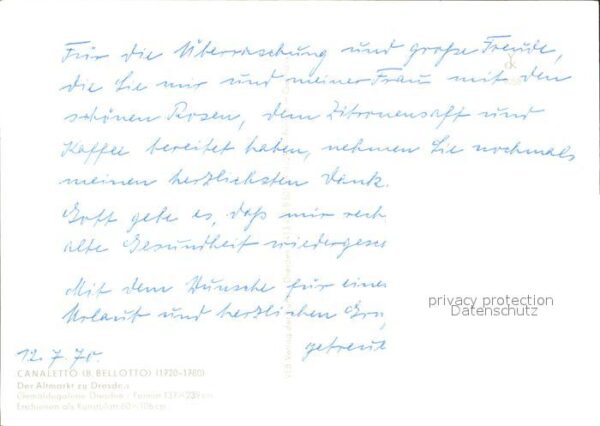 Für die Überraschung und große Freude,
die Sie mir und meiner Frau mit den
schönen Rosen, dem Zitronensaft und
Kaffee bereitet haben, nehmen Sie nochmals
meinen herzlichsten Dank.
Gott gebe es, daß mir
alte Gesundheit
Mit dem Wunsche für einen
Urlaub und herzlichen
getreue
12.7.70.
privacy protection
Datenschutz
CANALETTO (B. BELLOTTO) (1720–1780)
Der Altmarkt zu Dresden
Gemäldegalerie Dresden · Format 137 × 239 cm
Erschienen als Kunstblatt 60 × 106 cm